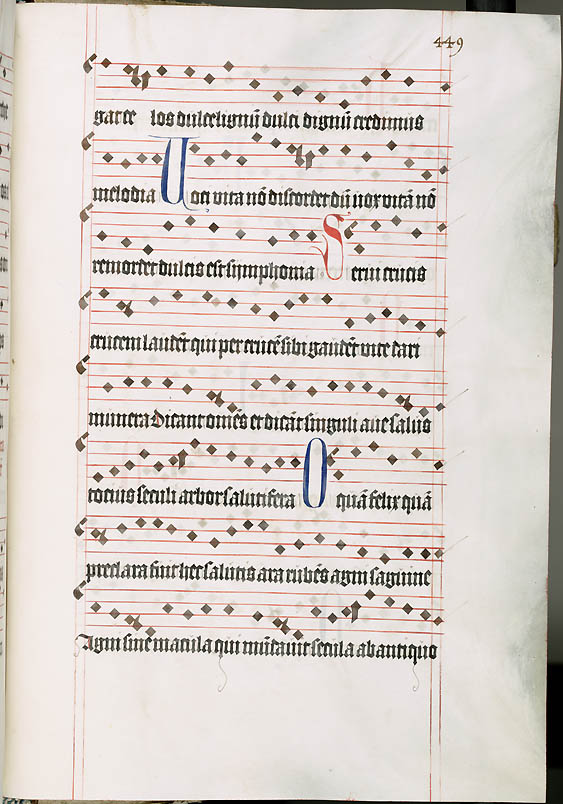 449
garce los dulce lignũ dulci dignũ credimus
melodia Uoci vita nõ discordet dũ vox vitã nõ
remordet dulcis est symphonia Serui crucis
crucem laudẽt qui per crucẽ sibi gaudẽt vite dari
munera Dicant om̃es et dicãt singuli aue salus
totius seculi arbor salutifera O quã felix quã
preclara fuit hec salutis ara rubẽs agni sãguine
Agni sine macula qui mũdauit secula ab antiquo